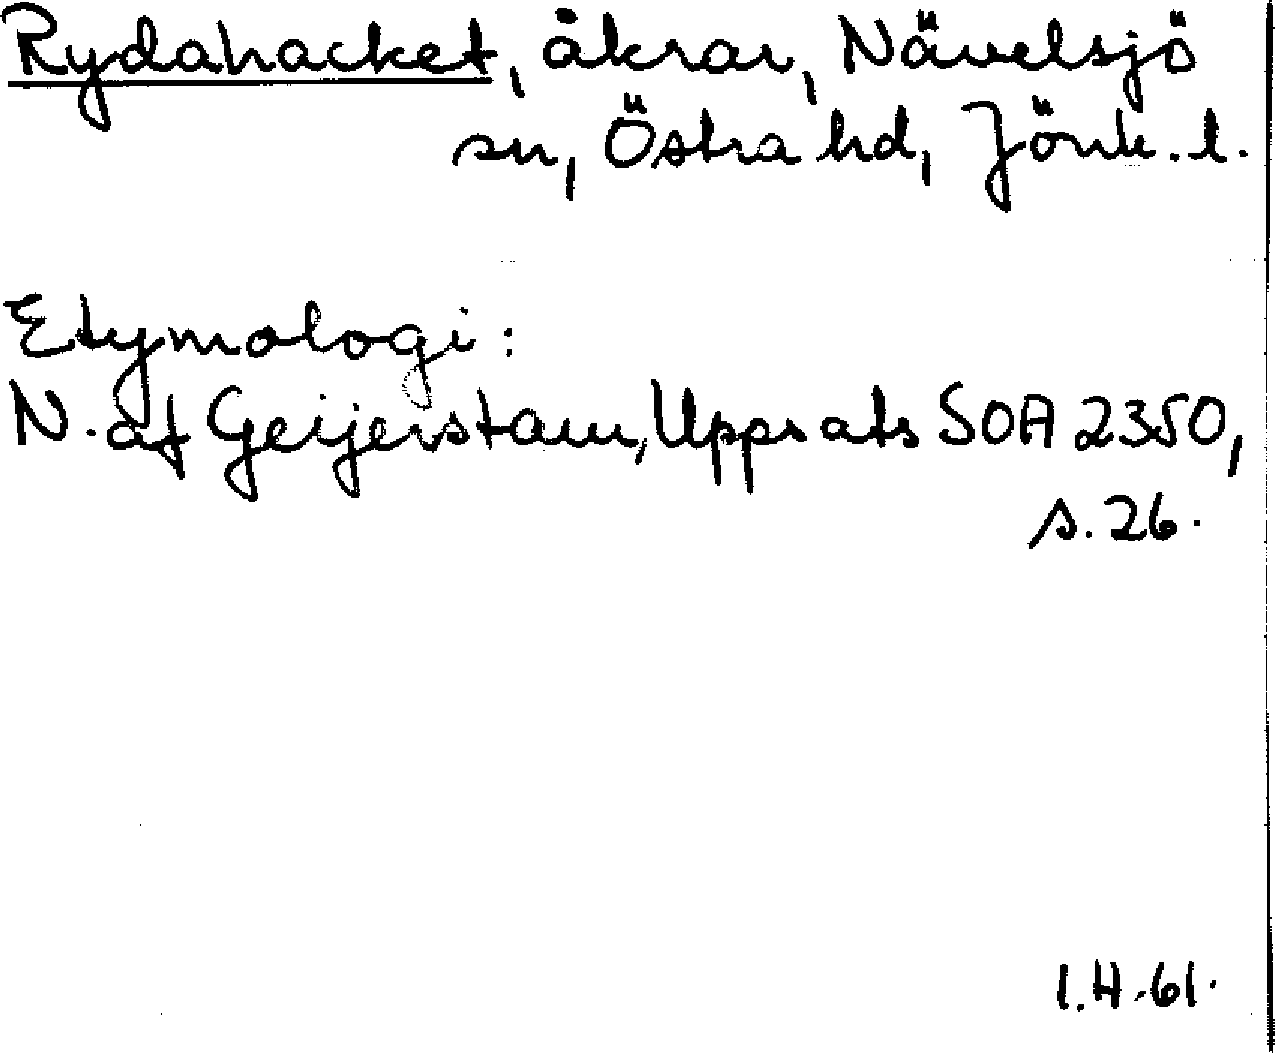 Rydahacket, åkrar, Nävelsjö
sn, Östra hd, Jönk. l.
Etymologi:
N. af Geijerstam, Uppsats SOA 2350,
s. 26.
I.H-61.